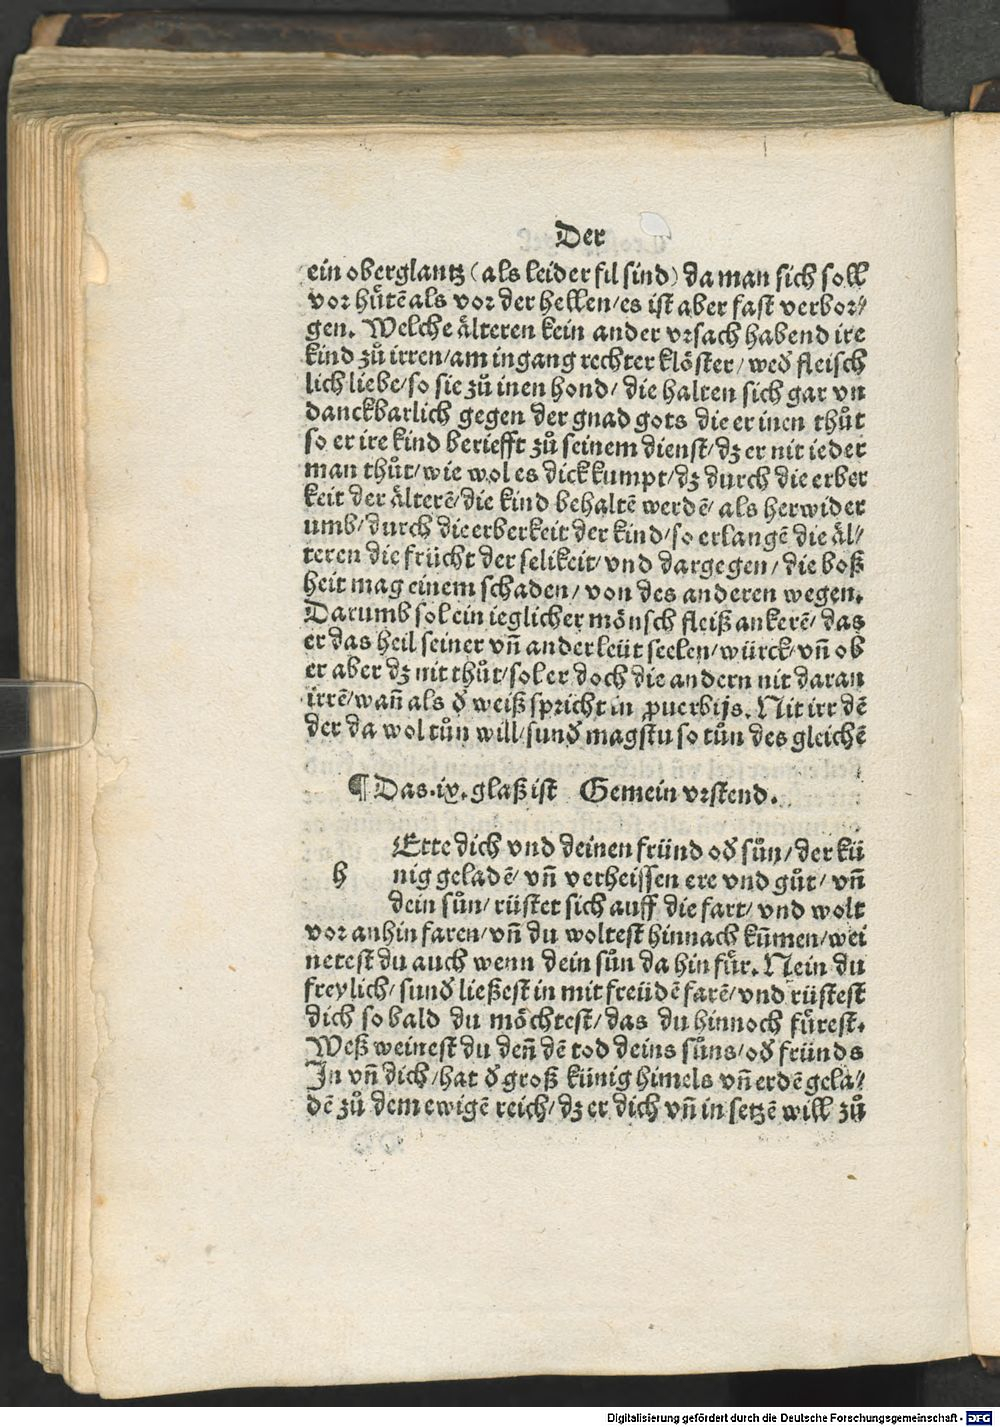 Der
ein oberglantz (als leider fil sind) da man sich soll
vor hůtē als vor der hellen/es ist aber fast verbor⸗
gen. Welche älteren kein ander vrsach habend ire
kind zů irren/am ingang rechter klöster/wed̕ fleisch
lich liebe/so sie zů inen hond/die halten sich gar vn
danckbarlich gegen der gnad gots die er inen thůt
so er ire kind beriefft zů seinem dienst/dz er nit ieder
man thůt/wie wol es dick kumpt/dz durch die erber
keit der älterē/die kind behaltē werdē/als herwider
umb/durch die erberkeit der kind/so erlangē die äl⸗
teren die frücht der selikeit/vnd dargegen/die boß
heit mag einem schaden/von des anderen wegen.
Darumb sol ein ieglicher mönsch fleiß ankerē/das
er das heil seiner vñ ander leüt seelen/würck/vñ ob
er aber dz nit thůt/sol er doch die andern nit daran
irrē/wañ als d̕ weiß spricht in ꝓuerbijs. Nit irr dē
der da wol tůn will/sund̕ magstu so tůn des gleichē
¶ Das .ix. glaß ist Gemein vrstend.
Ette dich vnd deinen fründ od̕ sůn/der kü
h nig geladē/vñ verheissen ere vnd gůt/vñ
dein sůn/rüstet sich auff die fart/vnd wolt
vor anhin faren/vñ du woltest hinnach kūmen/wei
netest du auch wenn dein sůn da hin fůr. Nein du
freylich/sund̕ ließest in mit freüdē farē/vnd rüstest
dich so bald du möchtest/das du hinnoch fůrest.
Weß weinest du deñ dē tod deins sůns/od̕ fründs
In vñ dich/hat d̕ groß künig himels vñ erdē gela⸗
dē zů dem ewigē reich/dz er dich vñ in setzē will zů
Digitalisierung gefördert durch die Deutsche Forschungsgemeinschaft - DFG